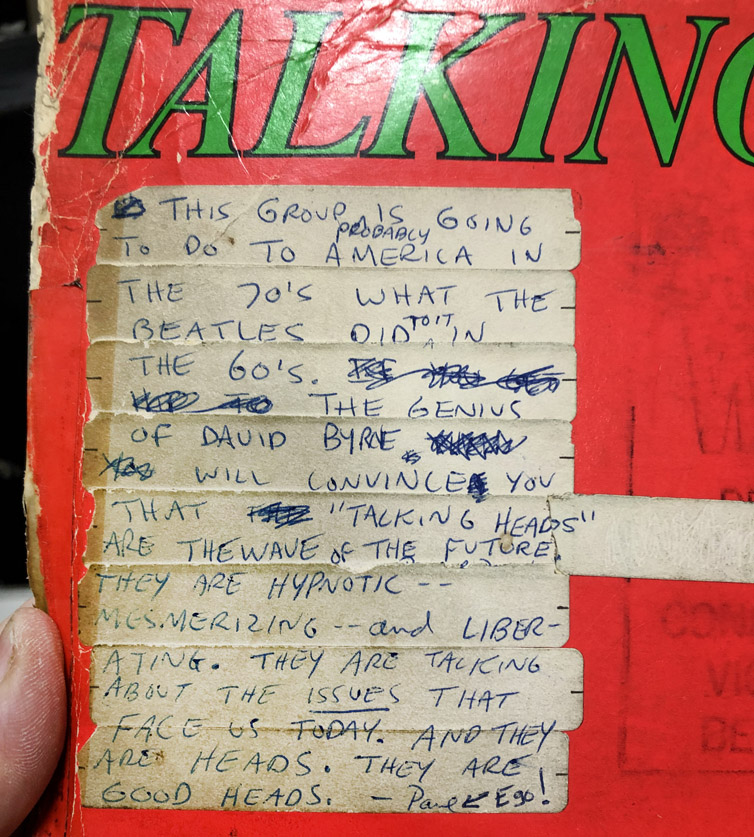 TALKING
THIS GROUP IS GOING
PROBABLY
TO DO TO AMERICA IN
THE 70'S WHAT THE
BEATLES DID TO IT IN
THE 60'S.
THE GENIUS
OF DAVID BYRNE
WILL CONVINCE YOU
THAT "TALKING HEADS"
ARE THE WAVE OF THE FUTURE
THEY ARE HYPNOTIC --
MESMERIZING -- and LIBER-
ATING. THEY ARE TALKING
ABOUT THE ISSUES THAT
FACE US TODAY. AND THEY
ARE HEADS. THEY ARE
GOOD HEADS. -